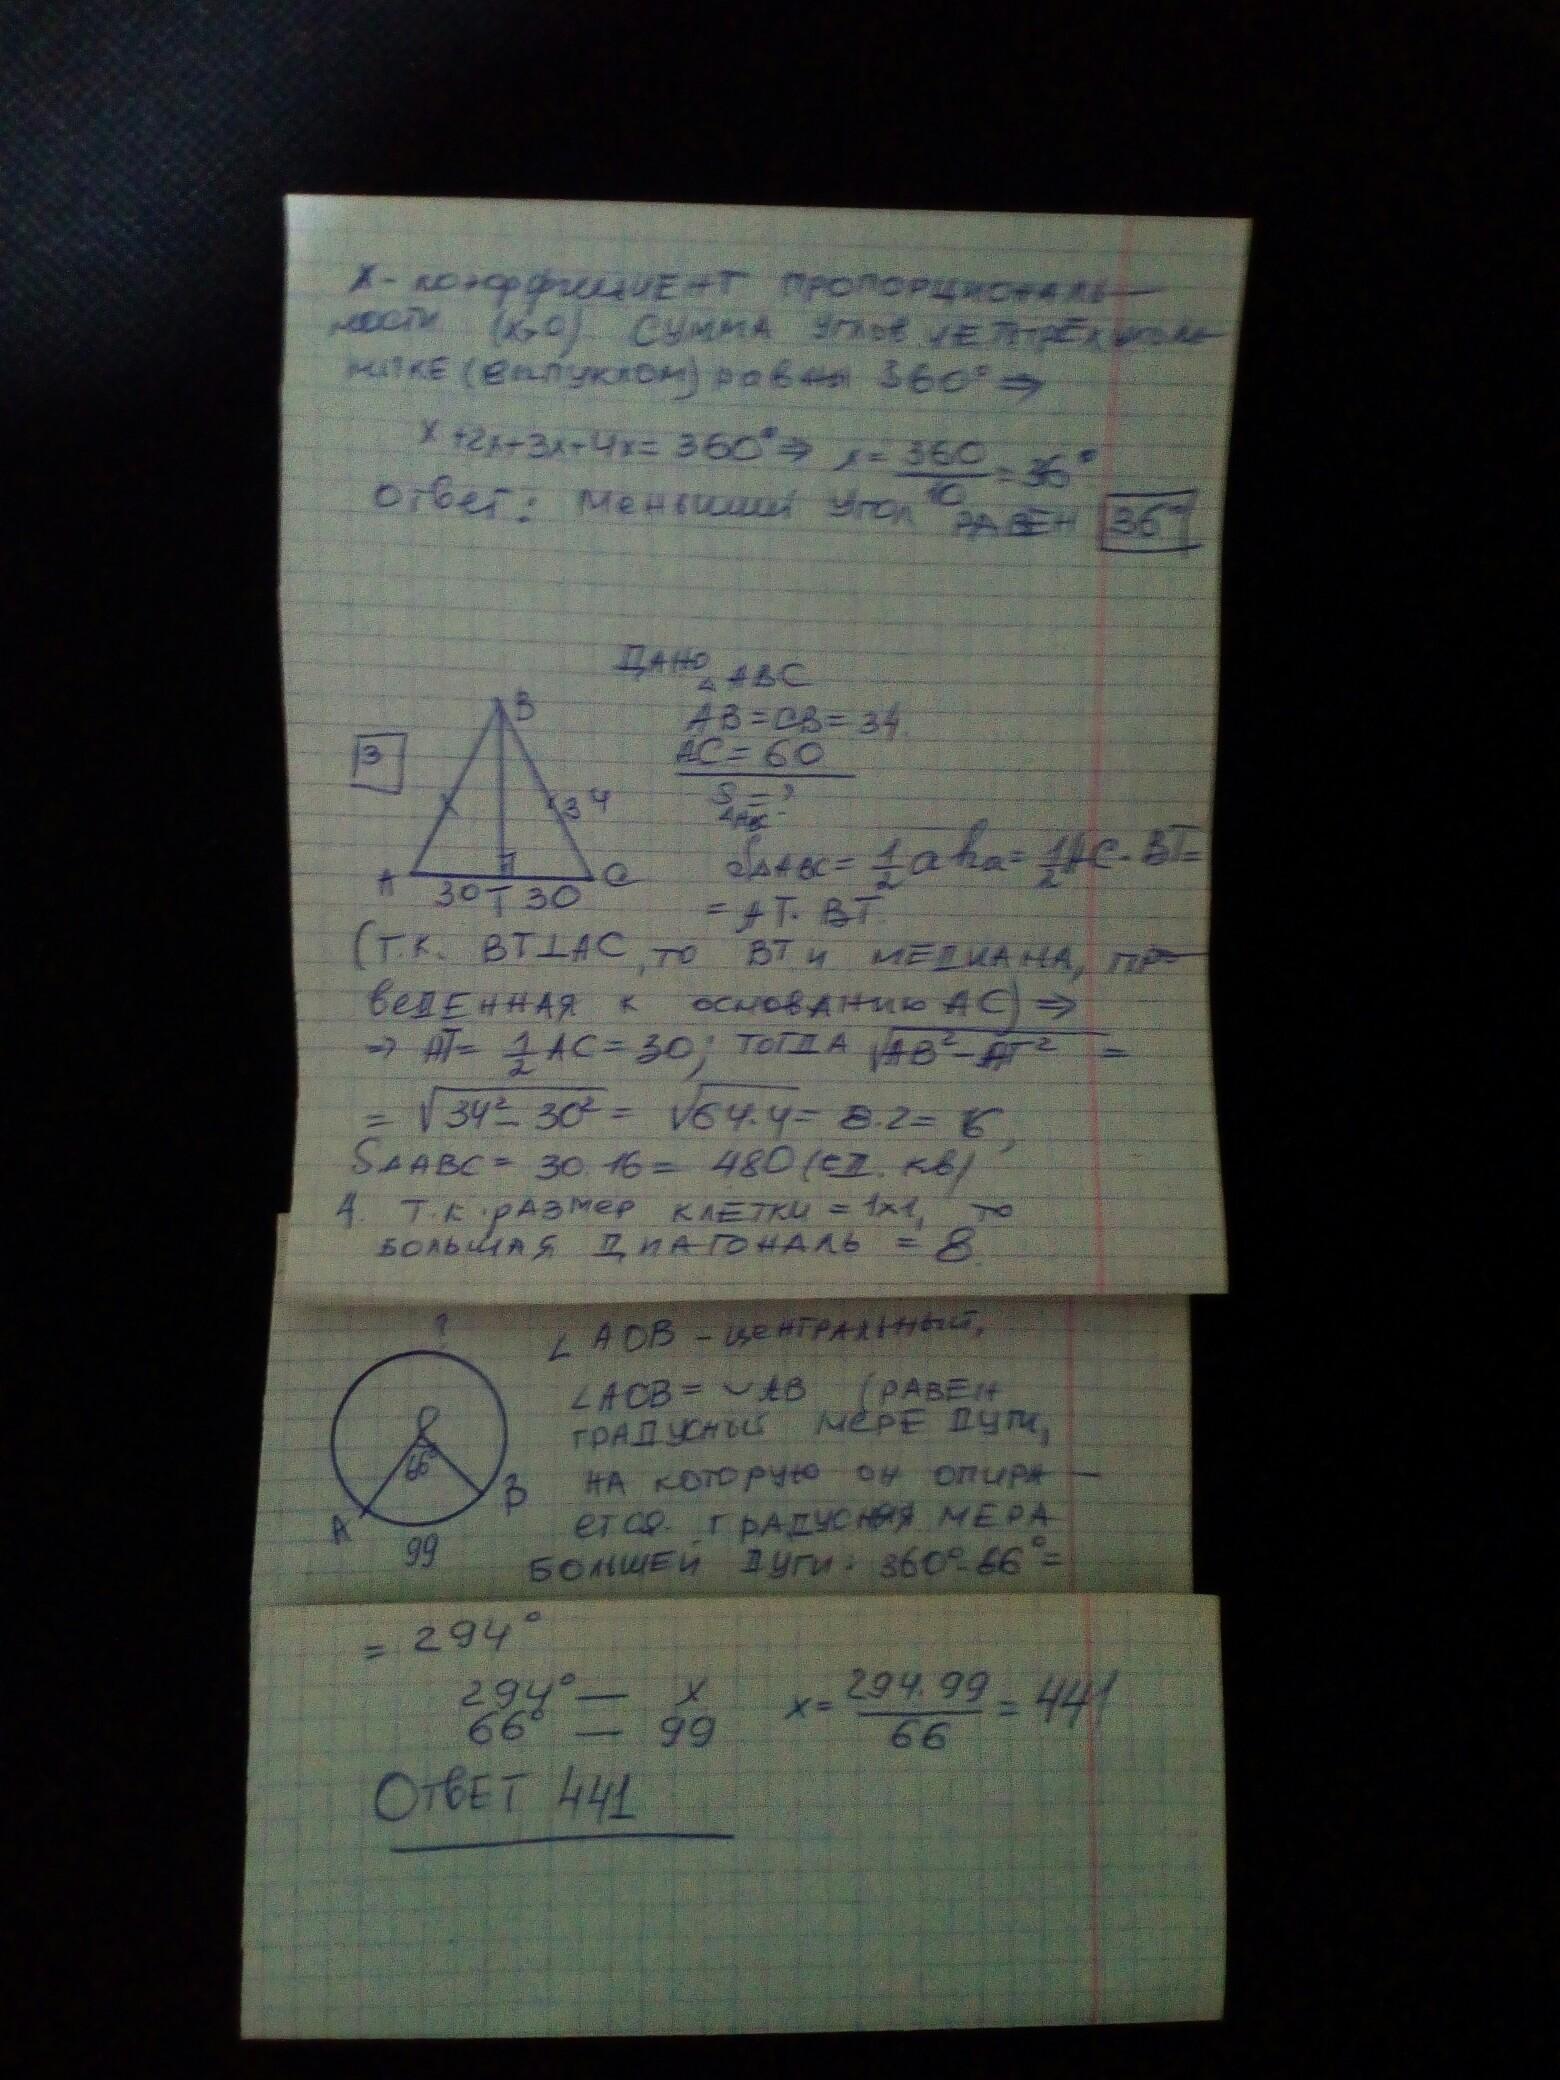 x - коэффициент пропорциональ-
ности (x>0) Сумма углов четырёхуголь
нике (выпуклом) равны 360° ⇒
x+2x+3x+4x=360° ⇒ x= 360/10 = 36°
Ответ: Меньший угол равен 36°
Дано
△ ABC
AB=CB=34.
AC=60
S△ABC=?
3
B
34
A 30 T 30 C
S△ABC= 1/2 a ha= 1/2 AC·BT=
= AT·BT.
(т.к. BT⊥AC, то BT и медиана, про-
веденная к основанию AC) ⇒
⇒ AT= 1/2 AC=30; тогда √AB²-AT² =
= √34²-30² = √64·4= 8·2=16,
S△ABC= 30·16= 480(ед. кв)
4. т.к. размер клетки = 1x1, то
большая диагональ = 8.
?
O
66°
A
B
99
∠AOB - центральный,
∠AOB= ◡AB (равен
градусный мере дуги,
на которую он опира-
ется. градусная мера
большей дуги: 360°-66°=
= 294°
294° — x
66° — 99
x= 294·99/66 = 441
Ответ 441